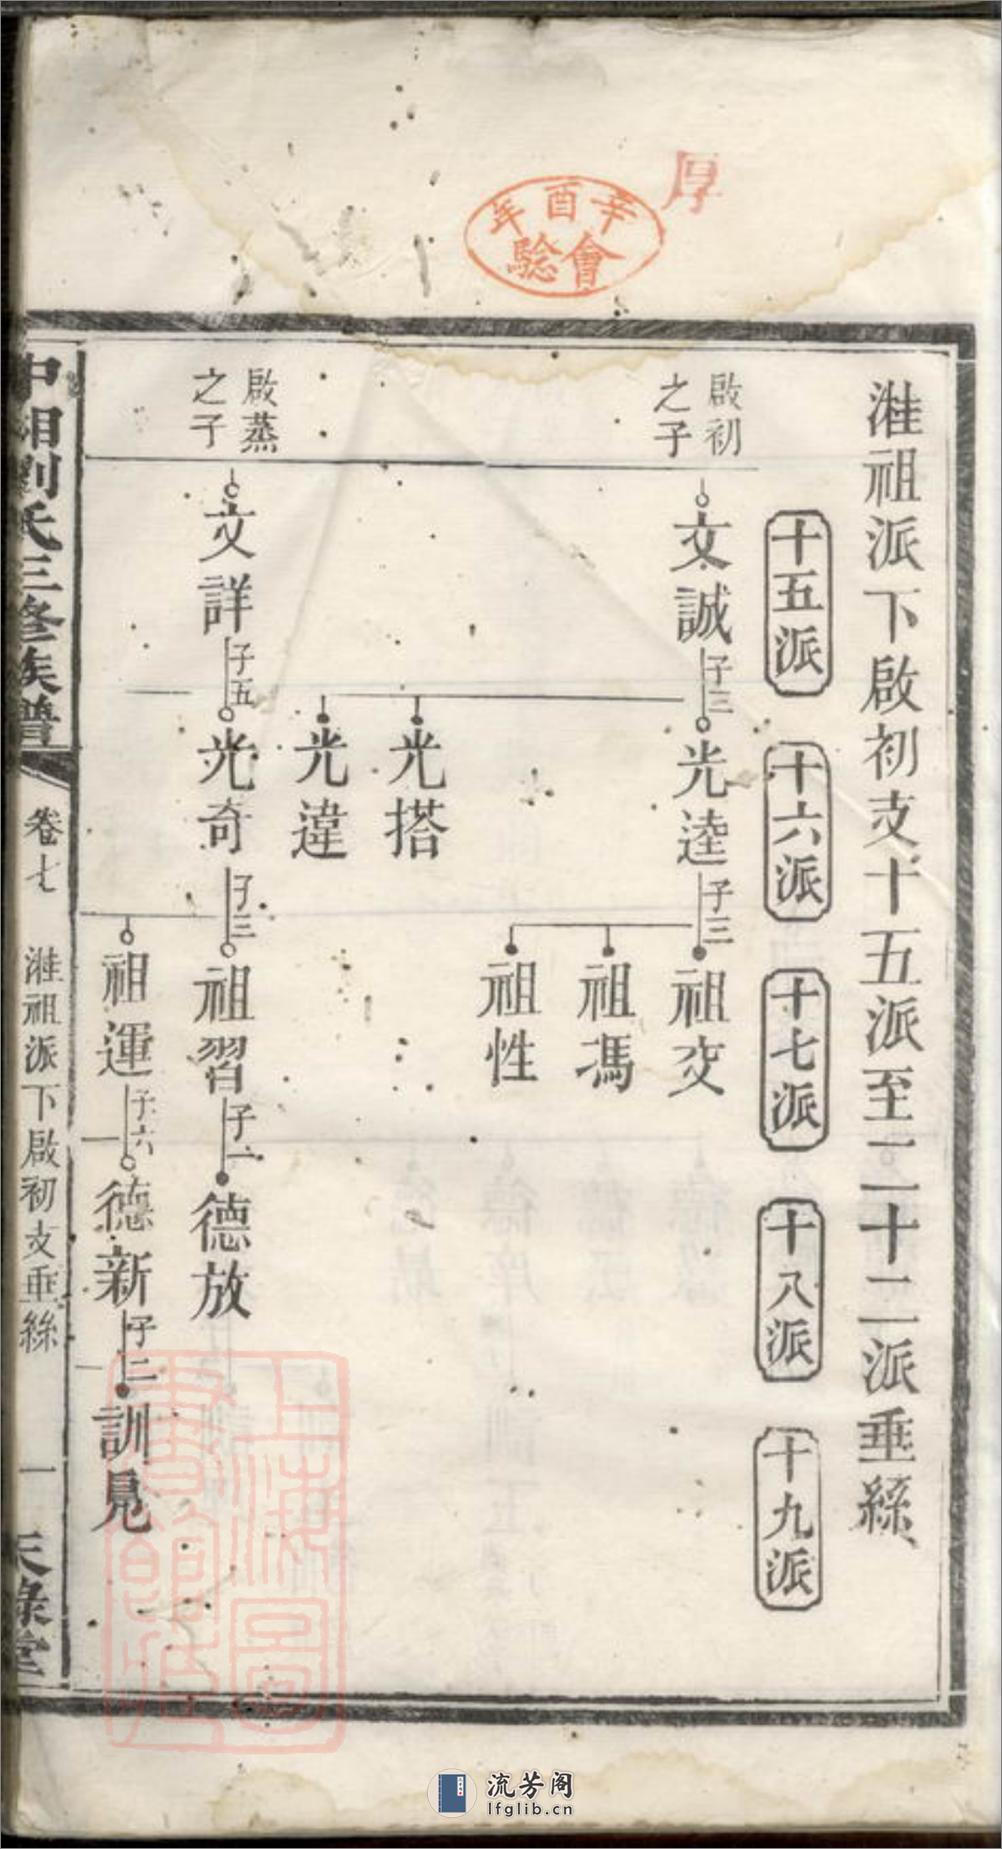 厚
辛酉年
會驗
溎祖派下啟初支十五派至二十二派垂絲
十五派
十六派
十七派
十八派
十九派
啟初之子
文誠
子三
光逵
子三
祖交
祖馮
祖性
光搭
光違
啟蒸之子
文詳
子五
光奇
子三
祖習
子一
德放
祖運
子六
德新
子二
訓見
中湘劉氏三修族譜
卷七
溎祖派下啟初支垂絲
一
天祿堂
上海圖書館藏
流芳阁
lfglib.cn